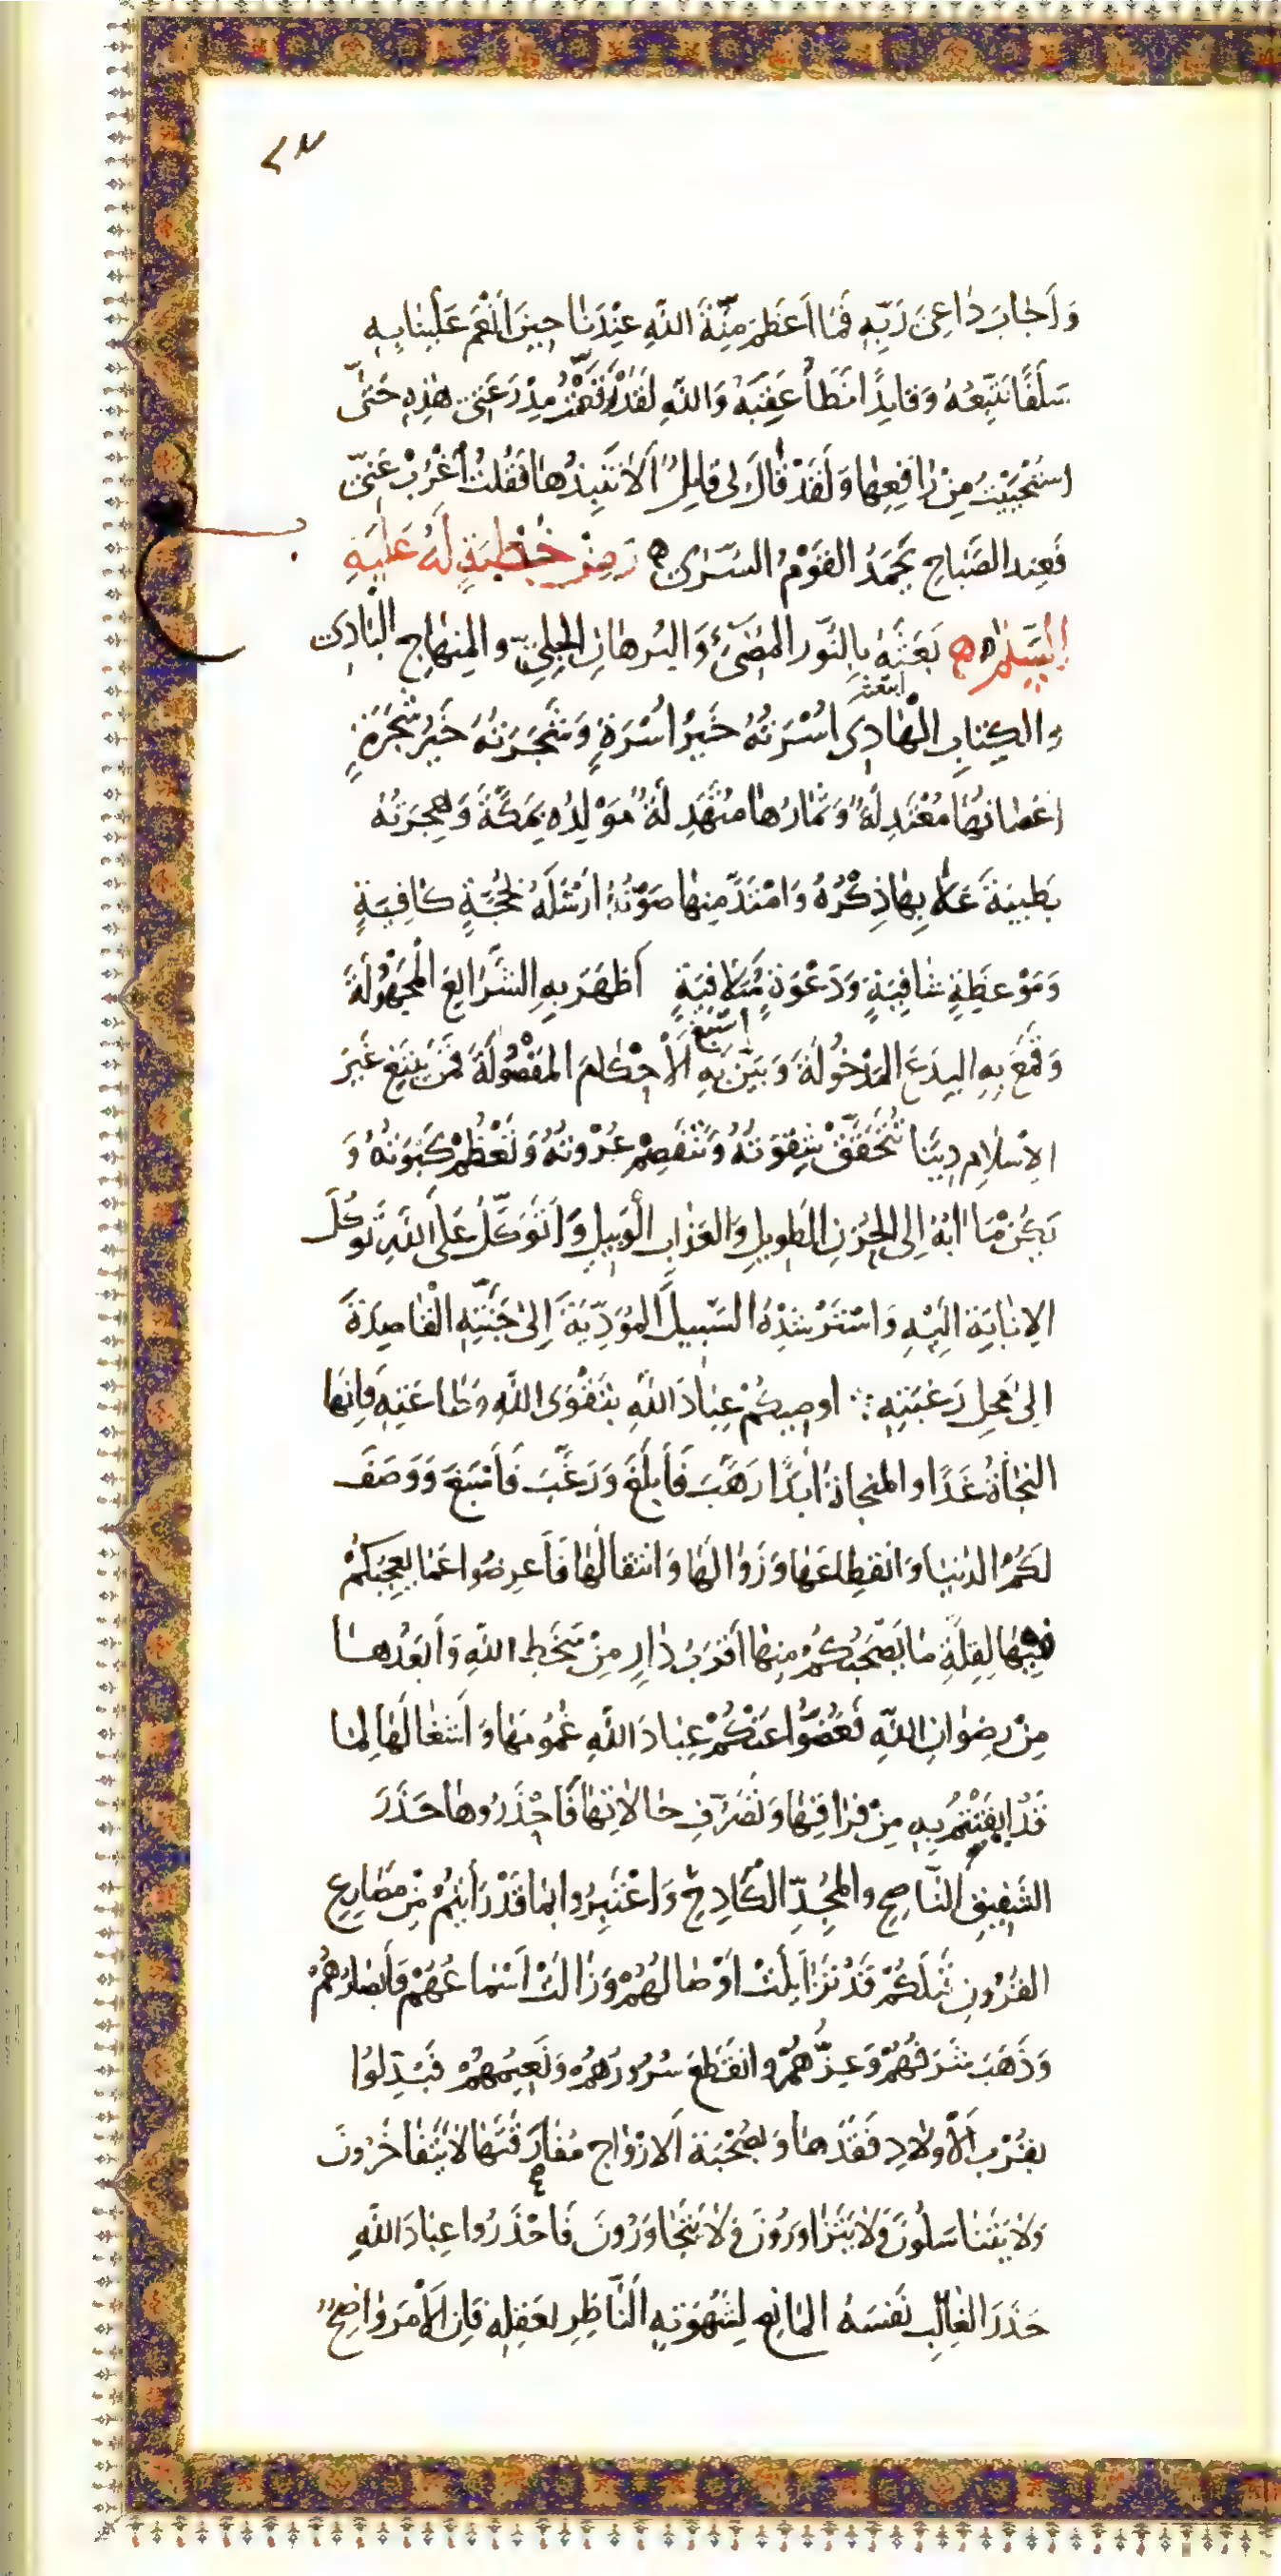 وَأَجَابَ دَاعِيَ رَبِّهِ فَمَا أَعْظَمَ مِنَّةَ اللهِ عِنْدَنَا حِينَ أَنْعَمَ عَلَيْنَا بِهِ
سَلَفًا نَتَّبِعُهُ وَقَايِدًا نَطَأُ عَقِبَهُ وَاللهِ لَقَدْ رَقَّعْتُ مِدْرَعَتِي هٰذِهِ حَتّٰى
اسْتَحْيَيْتُ مِنْ رَاقِعِهَا وَلَقَدْ قَالَ لِي قَايِلٌ أَلَا تَنْبِذُهَا فَقُلْتُ اغْرُبْ عَنِّي
فَعِنْدَ الصَّبَاحِ يَحْمَدُ الْقَوْمُ السُّرَى وَمِنْ خُطْبَةٍ لَهُ عَلَيْهِ
السَّلَمُ بَعَثَهُ بِالنُّورِ الْمُضِيءِ وَالْبُرْهَانِ الْجَلِيِّ وَالْمِنْهَاجِ الْبَادِي
ابتعثه
وَالْكِتَابِ الْهَادِي أُسْرَتُهُ خَيْرُ أُسْرَةٍ وَشَجَرَتُهُ خَيْرُ شَجَرَةٍ
أَغْصَانُهَا مُعْتَدِلَةٌ وَثِمَارُهَا مُتَهَدِّلَةٌ مَوْلِدُهُ بِمَكَّةَ وَهِجْرَتُهُ
بِطَيْبَةَ عَلَا بِهَا ذِكْرُهُ وَامْتَدَّ مِنْهَا صَوْتُهُ أَرْسَلَهُ بِحُجَّةٍ كَافِيَةٍ
وَمَوْعِظَةٍ شَافِيَةٍ وَدَعْوَةٍ مُتَلَافِيَةٍ أَظْهَرَ بِهِ الشَّرَايِعَ الْمَجْهُولَةَ
وَقَمَعَ بِهِ الْبِدَعَ الْمَدْخُولَةَ وَبَيَّنَ بِهِ الْأَحْكَامَ الْمَفْصُولَةَ فَمَنْ يَبْتَغِ غَيْرَ
الْإِسْلَامِ دِينًا تَتَحَقَّقْ شِقْوَتُهُ وَتَنْفَصِمْ عُرْوَتُهُ وَتَعْظُمْ كَبْوَتُهُ وَ
يَكُنْ مَآبُهُ إِلَى الْحُزْنِ الطَّوِيلِ وَالْعَذَابِ الْوَبِيلِ وَأَتَوَكَّلُ عَلَى اللهِ تَوَكُّلَ
الْإِنَابَةِ إِلَيْهِ وَأَسْتَرْشِدُهُ السَّبِيلَ الْمُؤَدِّيَةَ إِلَى جَنَّتِهِ الْقَاصِدَةَ
إِلَى مَحَلِّ رَغْبَتِهِ أُوصِيكُمْ عِبَادَ اللهِ بِتَقْوَى اللهِ وَطَاعَتِهِ فَإِنَّهَا
النَّجَاةُ غَدًا وَالْمَنْجَاةُ أَبَدًا رَهَّبَ فَأَبْلَغَ وَرَغَّبَ فَأَسْبَغَ وَوَصَفَ
لَكُمُ الدُّنْيَا وَانْقِطَاعَهَا وَزَوَالَهَا وَانْتِقَالَهَا فَأَعْرِضُوا عَمَّا يُعْجِبُكُمْ
فِيهَا لِقِلَّةِ مَا يَصْحَبُكُمْ مِنْهَا أَقْرَبُ دَارٍ مِنْ سَخَطِ اللهِ وَأَبْعَدُهَا
مِنْ رِضْوَانِ اللهِ فَغُضُّوا عَنْكُمْ عِبَادَ اللهِ غُمُومَهَا وَأَشْغَالَهَا لِمَا
قَدْ أَيْقَنْتُمْ بِهِ مِنْ فِرَاقِهَا وَتَصَرُّفِ حَالَاتِهَا فَاحْذَرُوهَا حَذَرَ
الشَّفِيقِ النَّاصِحِ وَالْمُجِدِّ الْكَادِحِ وَاعْتَبِرُوا بِمَا قَدْ رَأَيْتُمْ مِنْ مَصَارِعِ
الْقُرُونِ قَبْلَكُمْ قَدْ تَزَايَلَتْ أَوْصَالُهُمْ وَزَالَتْ أَسْمَاعُهُمْ وَأَبْصَارُهُمْ
وَذَهَبَ شَرَفُهُمْ وَعِزُّهُمْ وَانْقَطَعَ سُرُورُهُمْ وَنَعِيمُهُمْ فَبُدِّلُوا
بِقُرْبِ الْأَوْلَادِ فَقْدَهَا وَبِصُحْبَةِ الْأَزْوَاجِ مُفَارَقَتَهَا لَا يَتَفَاخَرُونَ
وَلَا يَتَنَاسَلُونَ وَلَا يَتَزَاوَرُونَ وَلَا يَتَجَاوَرُونَ فَاحْذَرُوا عِبَادَ اللهِ
حَذَرَ الْغَالِبِ نَفْسَهُ الْمَانِعِ لِشَهْوَتِهِ النَّاظِرِ لِعَقْلِهِ فَإِنَّ الْأَمْرَ وَاضِحٌ